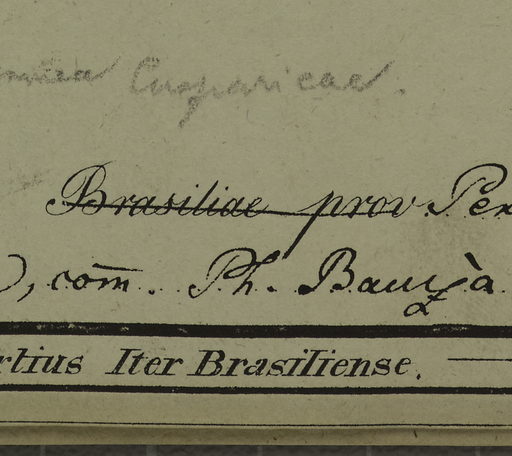 Cusparieae.
Brasiliae prov. Per
), com̄. Ph. Bauzà
rtius Iter Brasiliense.